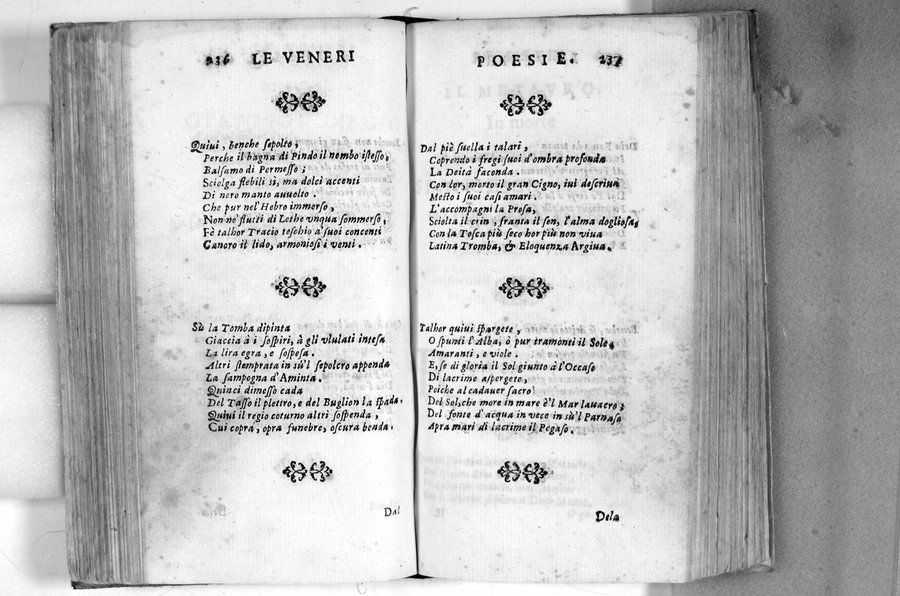 236 LE VENERI
Quiui, benche sepolto,
Perche il bagna di Pindo il nembo istesso,
Balsamo di Permesso;
Sciolga flebili sì, ma dolci accenti
Di nero manto auuolto.
Che pur nel'Hebro immerso,
Non ne'flutti di Lethe vnqua sommerso,
Fè talhor Tracio teschio a'suoi concenti
Canoro il lido, armoniosi i venti.
Sù la Tomba dipinta
Giaccia à i sospiri, à gli vlulati intesa
La lira egra, e sospesa.
Altri stemprata in sù'l sepolcro appenda
La sampogna d'Aminta.
Quinci dimesso cada
Del Tasso il plettro, e del Buglion la spada.
Quiui il regio coturno altri sospenda,
Cui copra, opra funebre, oscura benda.
Dal
POESIE. 237
Dal piè suella i talari,
Coprendo i fregi suoi d'ombra profonda
La Deità faconda.
Con lor, morto il gran Cigno, iui descriua
Mesto i suoi casi amari.
L'accompagni la Prosa,
Sciolta il crin, franta il sen, l'alma dogliosa,
Con la Tosca più seco hor più non viua
Latina Tromba, & Eloquenza Argiua.
Talhor quiui spargete,
O spunti l'Alba, ò pur tramonti il Sole,
Amaranti, e viole.
E, se di gloria il Sol giunto à l'Occaso
Di lacrime aspergete,
Poiche al cadauer sacro
Del Sol, che more in mare è'l Mar lauacro;
Del fonte d'acqua in vece in sù'l Parnaso
Apra mari di lacrime il Pegaso.
Dela